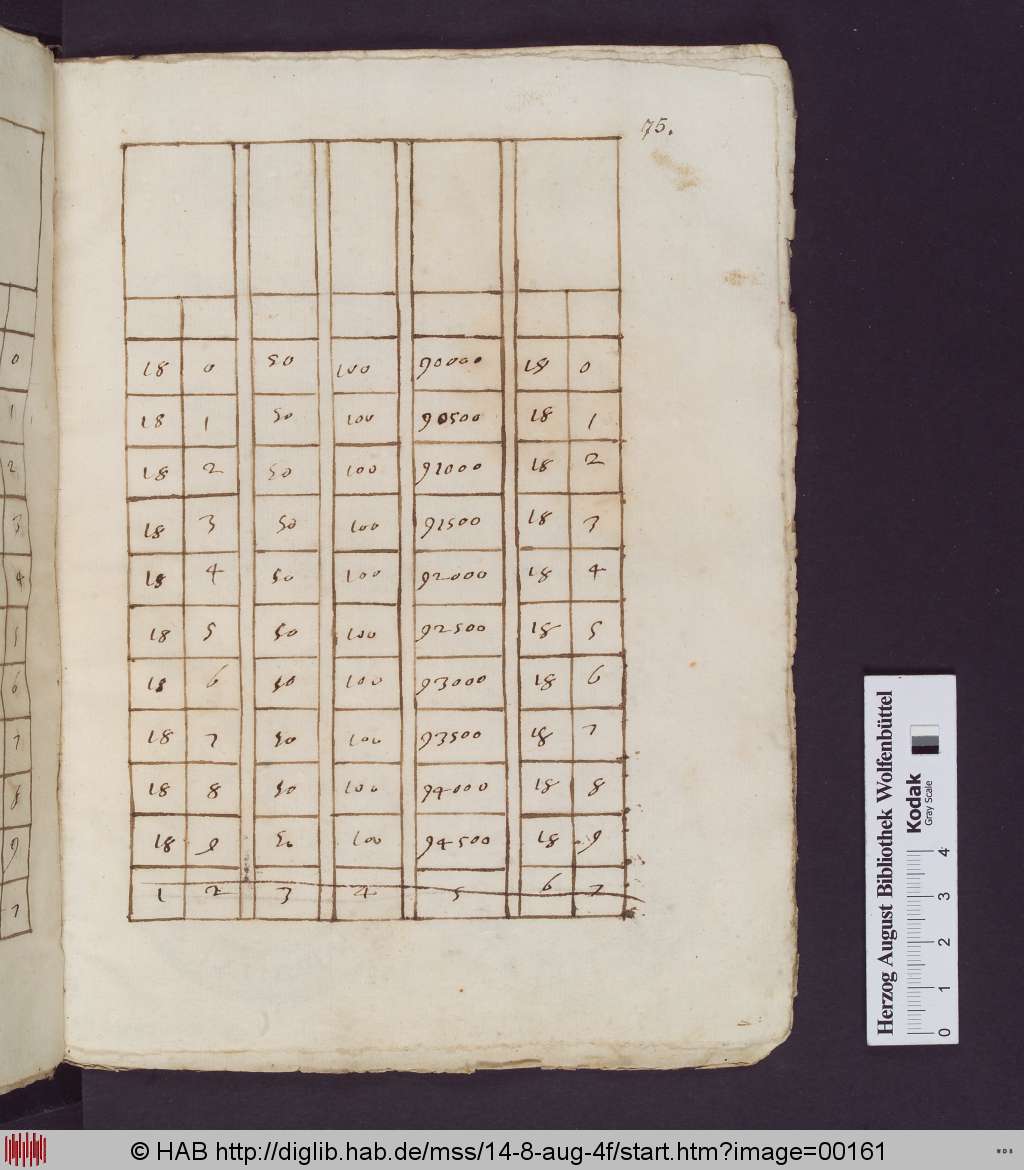 75.
18 0 50 100 90000 18 0
18 1 50 100 90500 18 1
18 2 50 100 91000 18 2
18 3 50 100 91500 18 3
18 4 50 100 92000 18 4
18 5 50 100 92500 18 5
18 6 50 100 93000 18 6
18 7 50 100 93500 18 7
18 8 50 100 94000 18 8
18 9 50 100 94500 18 9
1 2 3 4 5 6 7
0
1
2
3
4
5
6
7
8
9
7
Herzog August Bibliothek Wolfenbüttel
Kodak
Gray Scale
0 1 2 3 4
© HAB http://diglib.hab.de/mss/14-8-aug-4f/start.htm?image=00161